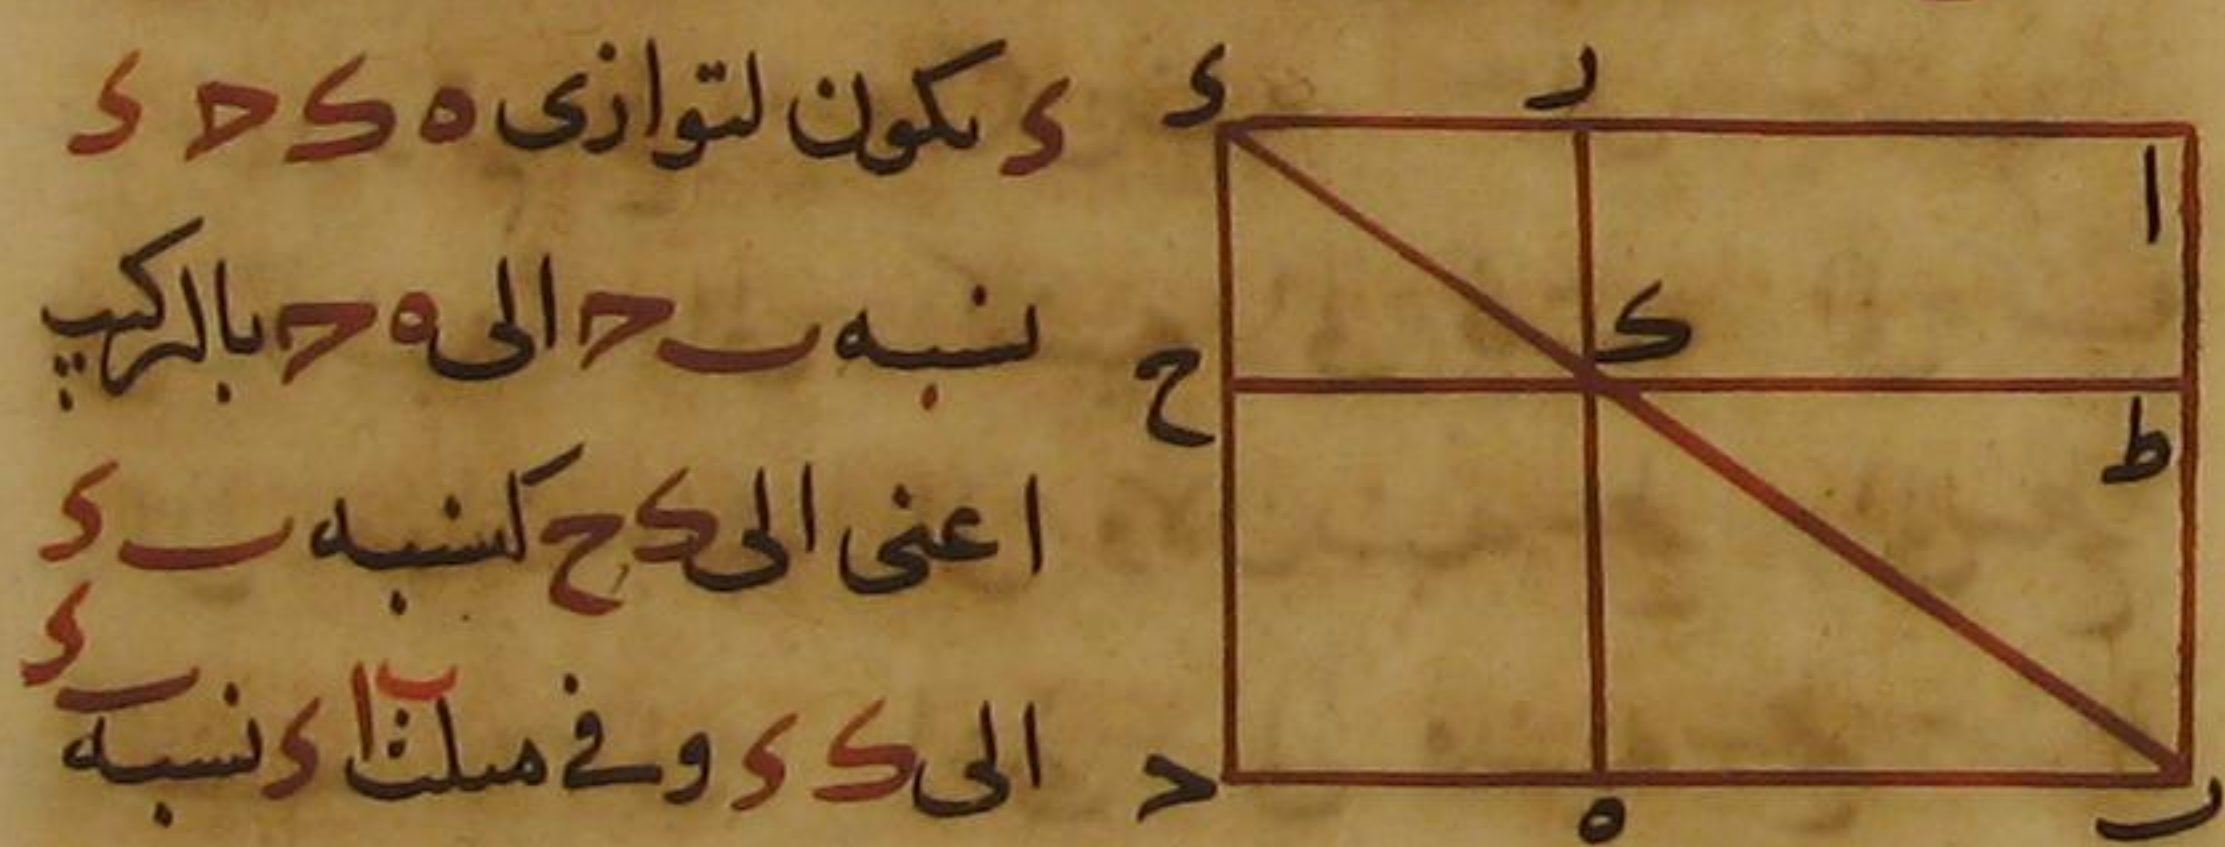 ء ىكون لتوازى ه ک ح ء
نسبه ب ح الى ه ح بالركيب
اعنى الى ک ح كنسبه ب ء
الى ک ء وفى مىلث ا ب ء نسبه ب ء
ء
ر
ا
ک
ح
ط
ح
ه
ب